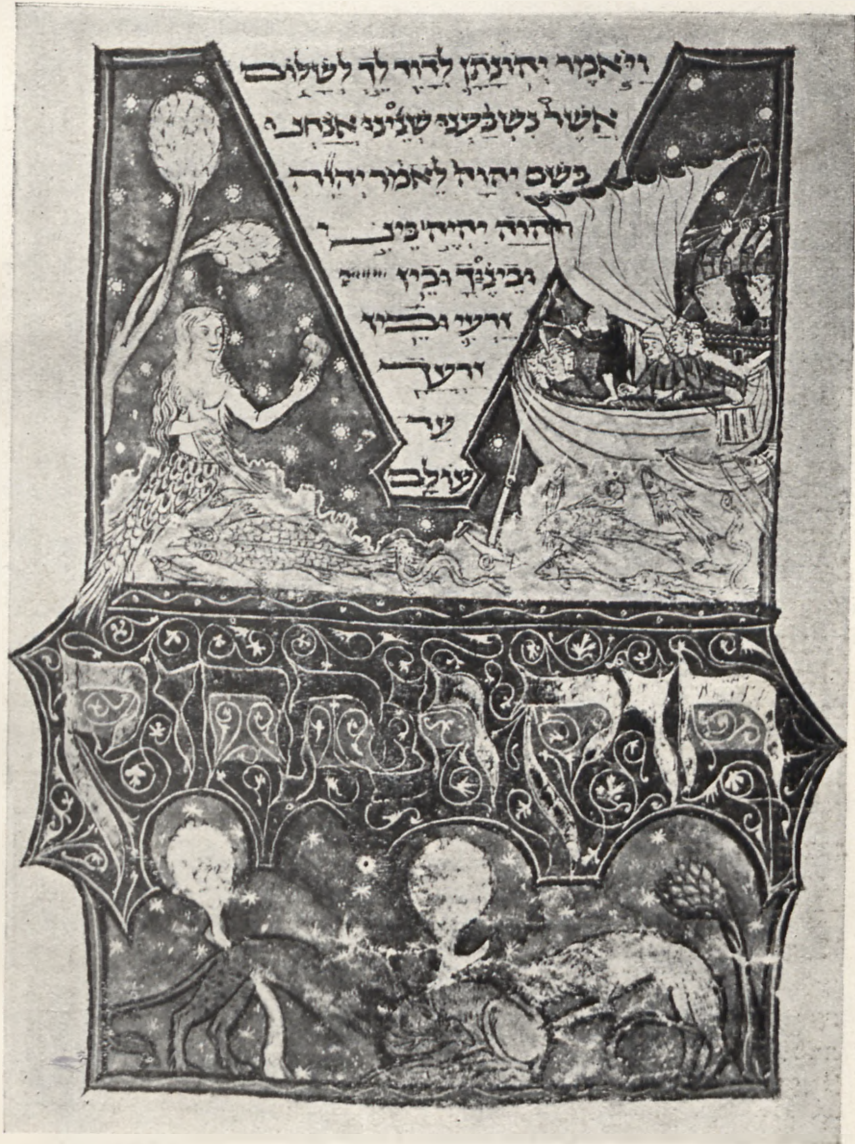 ויאמר יהונתן לדוד לך לשלום
אשר נשבענו שנינו אנחנו
בשם יהוה לאמר יהוה
יהוה יהיה ביני
ובינך ובין
זרעי ובין
זרעך
עד
עולם
חזק ונתחזק